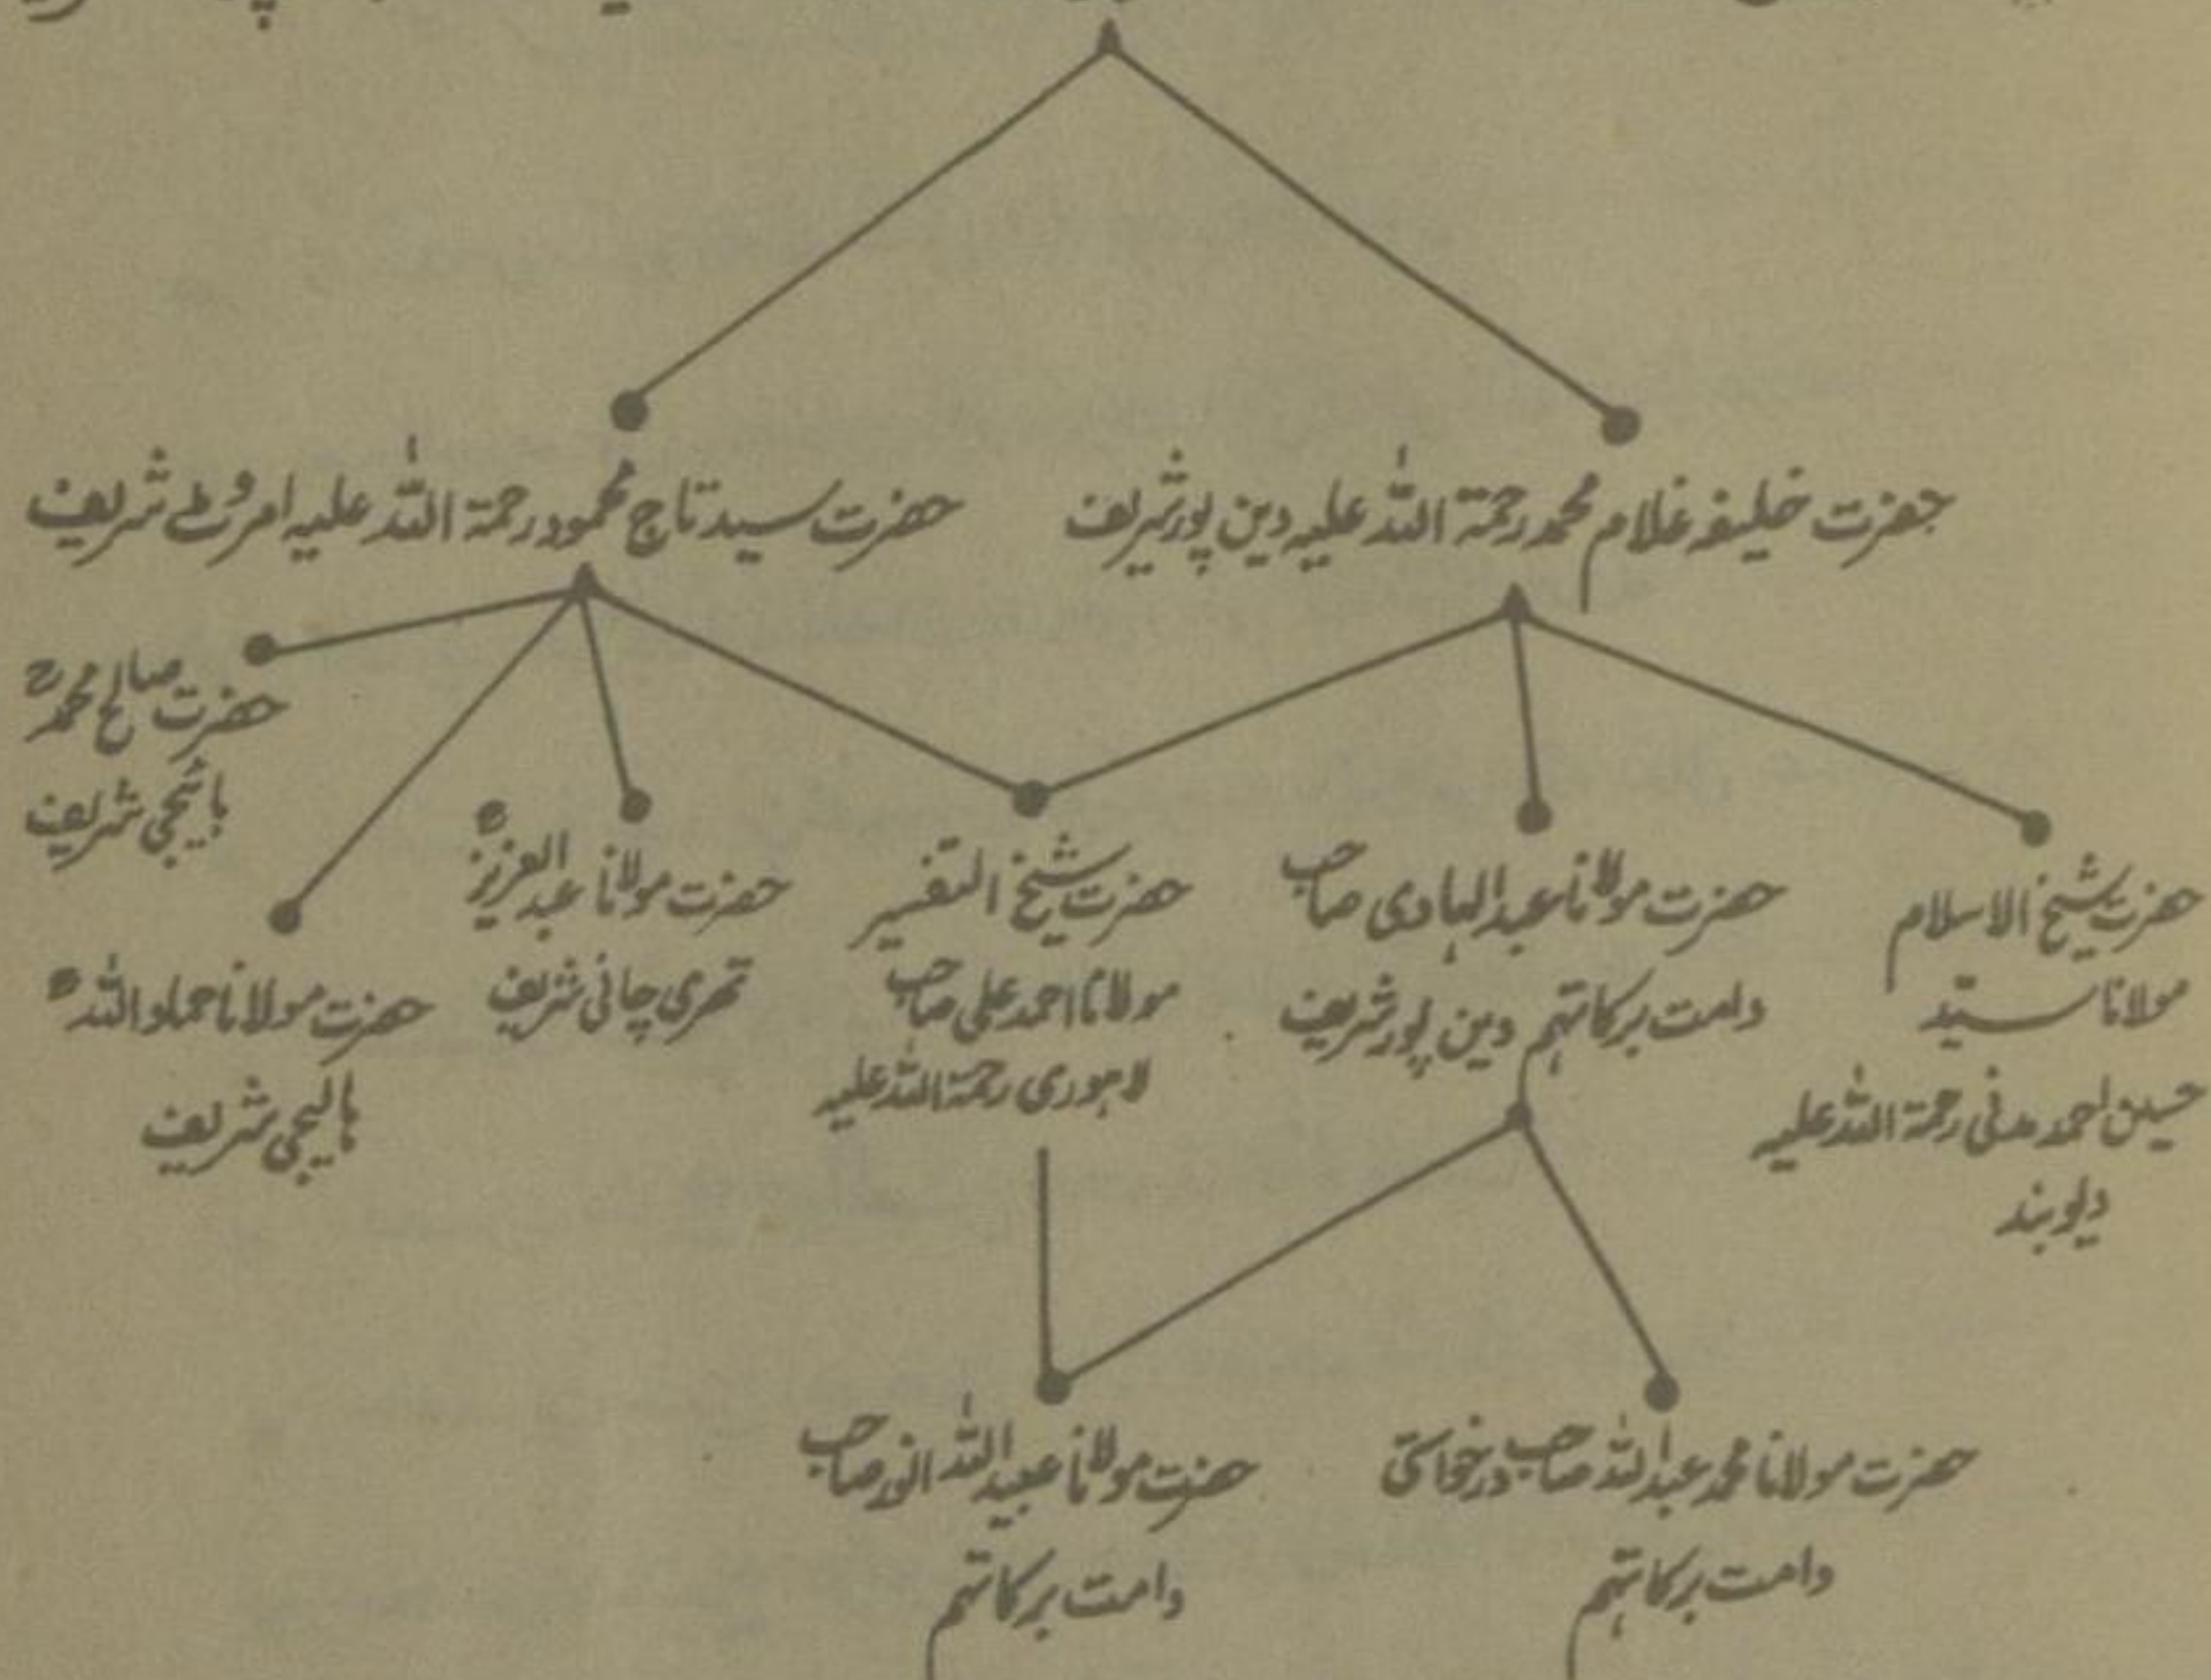 حضرت خلیفہ غلام محمد رحمۃ اللہ علیہ دین پور شریف
حضرت سید تاج محمود رحمۃ اللہ علیہ امروٹے شریف
حضرت شیخ الاسلام
مولانا سیّد
حسین احمد مدنی رحمۃ اللہ علیہ
دیوبند
حضرت مولانا عبدالہادی صاحب
دامت برکاتہم دین پور شریف
حضرت شیخ التفسیر
مولانا احمد علی صاحب
لاہوری رحمۃ اللہ علیہ
حضرت مولانا عبدالعزیزؒ
تھری چانی شریف
حضرت صالح محمدؒ
شریف
حضرت مولانا حماد اللہؒ
ہالیجی شریف
حضرت مولانا محمد عبداللہ صاحب درخواستی
دامت برکاتہم
حضرت مولانا عبیداللہ انور صاحب
دامت برکاتہم